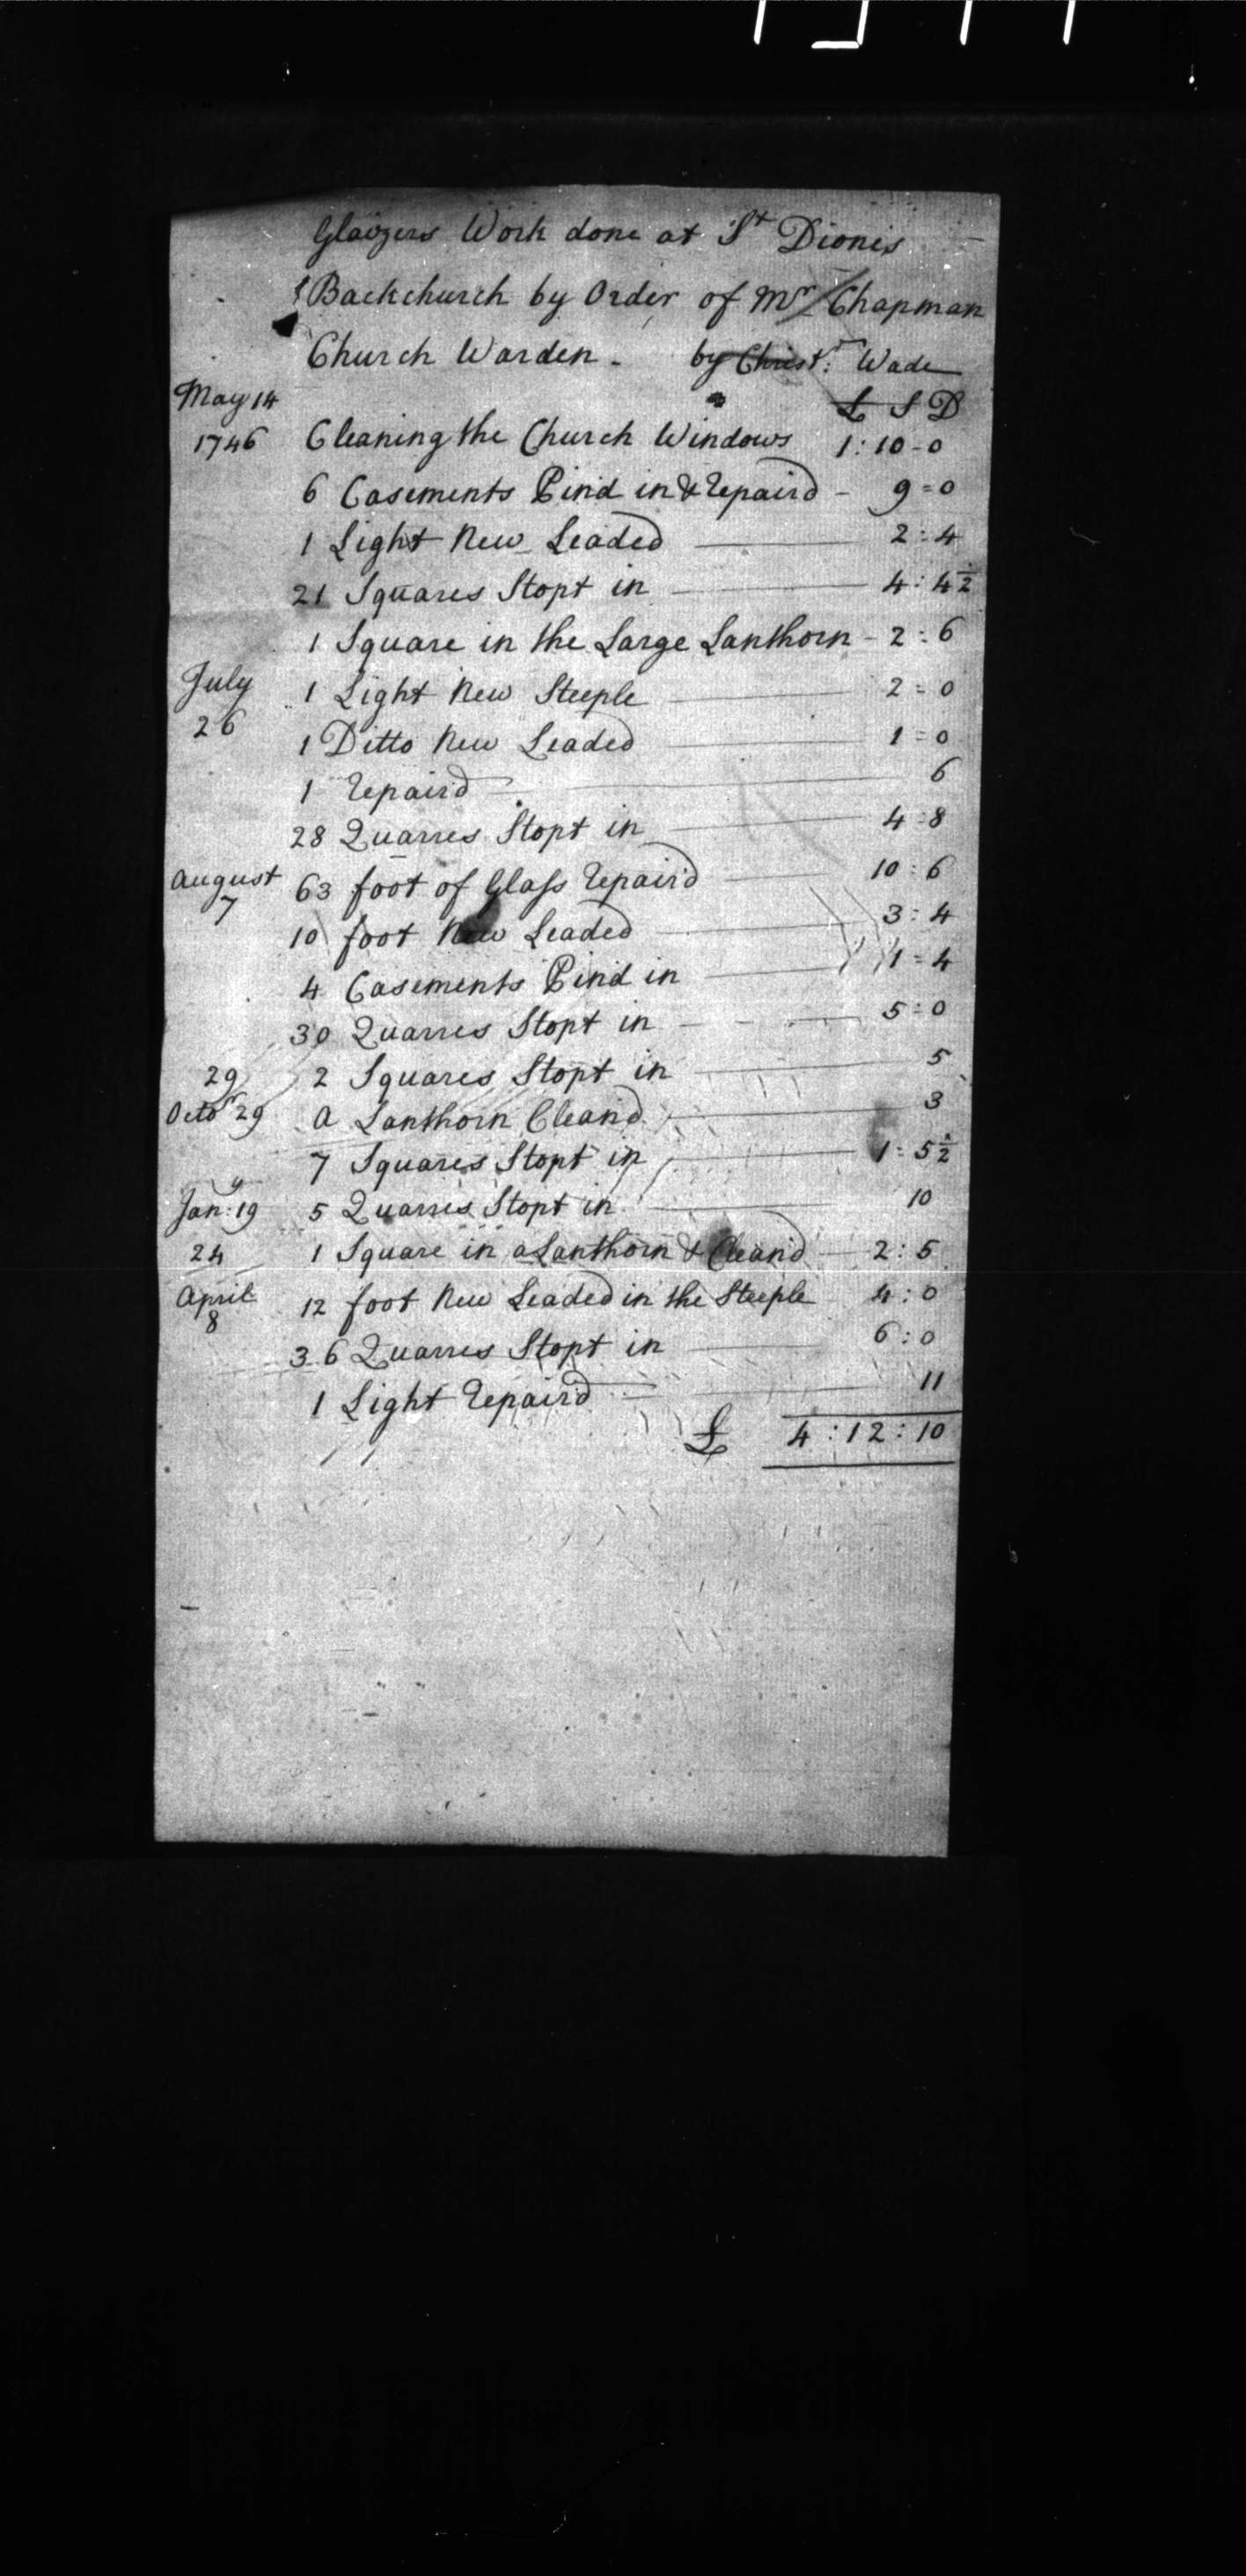 Glaizers Work done at St Dionis
Backchurch by Order of Mr Chapman
Church Warden - by Christr: Wade
£ S D
May 14
1746 Cleaning the Church Windows 1:10-0
6 Casements Pind in & Repaird - 9=0
1 Light New Leaded 2:4
21 Squares Stopt in 4:4½
1 Square in the Large Lanthorn - 2:6
July 26 1 Light New Steeple 2=0
1 Ditto New Leaded 1=0
1 Repaird 6
28 Quarres Stopt in 4:8
August 7 63 foot of Glass Repaird 10:6
10 foot New Leaded 3:4
4 Casements Pind in 1=4
30 Quarres Stopt in 5=0
29 2 Squares Stopt in 5
Octor 29 A Lanthorn Cleand 3
7 Squares Stopt in 1:5½
Jany: 19 5 Quarres Stopt in 10
24 1 Square in a Lanthorn & Cleand 2:5
April 8 12 foot New Leaded in the Steeple 4:0
36 Quarres Stopt in 6:0
1 Light Repaird 11
£ 4:12:10